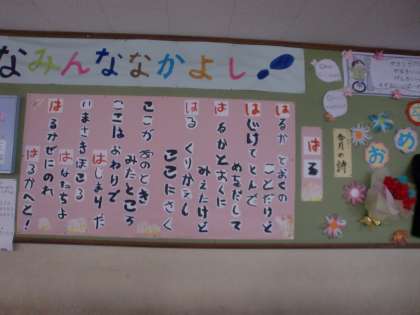 なみんななかよし!!
今月の詩
はる
はるか とおくの
ことだけど
はじけてとんで
めをだして
はるかとおくに
みえたけど
はる くりかえし
ここにさく
ここが あのとき
みたところ
ここはおわりで
はじまりだ
いまさきほこる
はなたちよ
はるかぜにのれ
はるかへと!
おめ